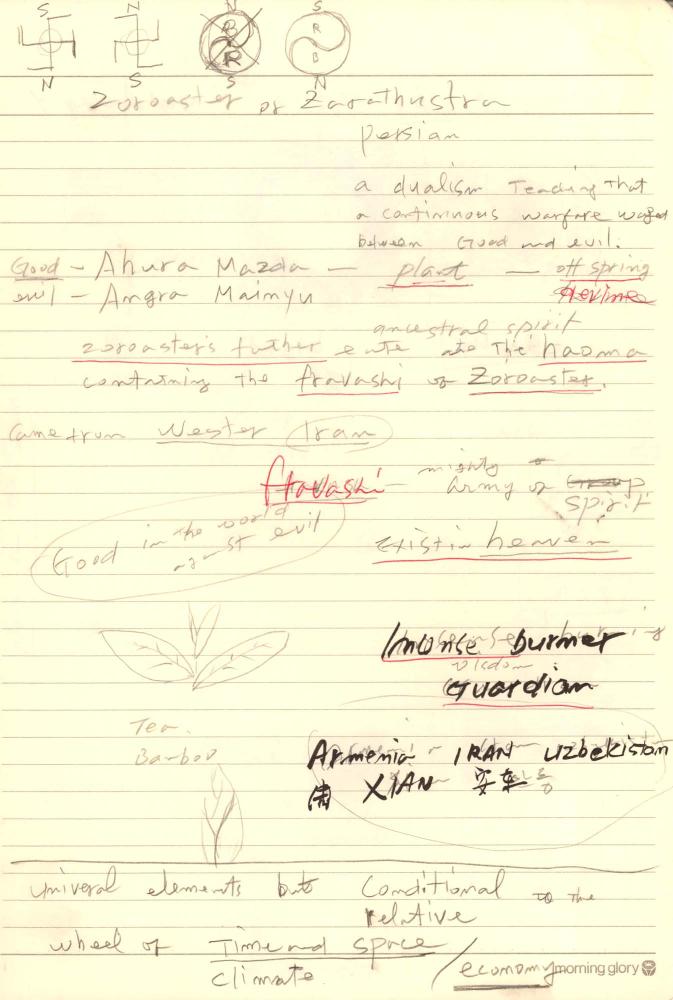 S N N S
B R
R B
N S S N
Zoroaster or Zarathustra
Persian
a dualism Teaching That
a continuous warfare waged
between Good and evil.
Good - Ahura Mazda - plant - offspring
evil - Angra Mainyu
ancestral spirit
zoroaster's futher ate The haoma
containing the fravashi of Zoroaster.
Came from Wester Iran
fravashi - mighty Army of
spirit
Good in the world
against evil
Exist in heaven
burner
wisdom
Guardian
Tea
Armenia IRAN Uzbekistan
XIAN
univeral elements but Conditional to the
relative
wheel of Time and space
climate / economy
morning glory